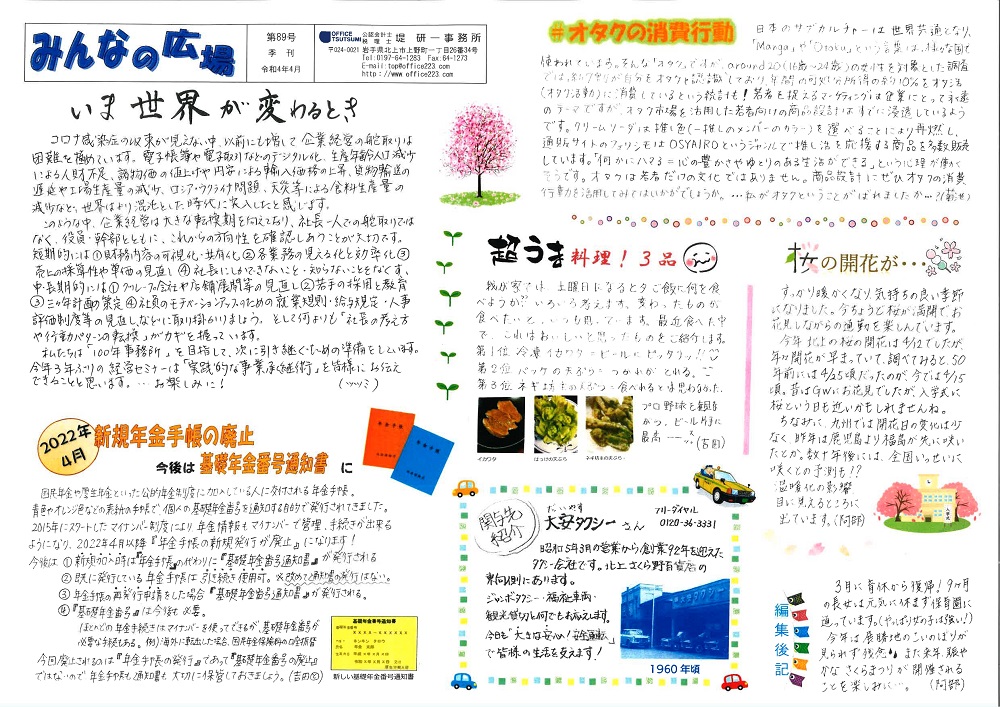 みんなの広場
第89号
季刊
令和4年4月
OFFICE TSUTSUMI
公認会計士 税理士 堤 研一 事務所
〒024-0021 岩手県北上市上野町一丁目26番34号
Tel 0197-64-1283 Fax 64-1273
E-mail:top@office223.com
http://www.office223.com
いま世界が変わるとき
コロナ感染症の収束が見えない中、以前にも増して企業経営の舵取りは
困難を極めています。電子帳簿や電子取引などのデジタル化、生産年齢人口減少
による人材不足、諸物価の値上げや円安による輸入価格の上昇、貨物輸送の
遅延や工場生産量の減少、ロシア・ウクライナ問題、天災等による食料生産量の
減少など、世界はより混沌とした時代に突入したと感じます。
このような中、企業経営は大きな転換期を迎えており、社長一人での舵取りでは
なく、役員・幹部とともに、これからの方向性を確認しあうことが大切です。
短期的には①財務内容の可視化・共有化②各業務の見える化と効率化③
売上の採算性や単価の見直し④社長にしかできないこと・知らないことをなくす、
中・長期的には①グループ会社や店舗展開等の見直し②若手の採用と教育
③三か年計画の策定④社員のモチベーションアップのための就業規則・給与規定・人事
評価制度等の見直しなどに取り掛かりましょう。そして何よりも「社長の考え方
や行動パターンの転換」がカギを握っています。
私たちは「100年事務所」を目指して、次に引き継ぐための準備をしています。
今年3年ぶりの経営セミナーは「実践的な事業承継術」を皆様にお伝え
できることと思います。…お楽しみに! (ツツミ)
2022年
4月
新規年金手帳の廃止
今後は 基礎年金番号通知書 に
国民年金や厚生年金といった公的年金制度に加入している人に交付される年金手帳。
青色やオレンジ色などの表紙の手帳で、個人の基礎年金番号を通知する目的で発行されてきました。
2015年にスタートしたマイナンバー制度により年金情報もマイナンバーで管理、手続きが出来る
ようになり、2022年4月以降『年金手帳の新規発行が廃止』になります!
今後は ① 新規加入時は『年金手帳』の代わりに『基礎年金番号通知書』が発行される
② 既に発行している年金手帳は引き続き使用可。※改めて通知書の発行はない。
③ 年金手帳の再発行申請をした場合『基礎年金番号通知書』が発行される。
④『基礎年金番号』は今後も必要。
ほとんどの年金手続きはマイナンバーを使ってできるが、基礎年金番号が
必要な手続もある。 例)海外に転出した場合、国民年金保険料の口座振替
今回廃止されるのは『年金手帳の発行』であって『基礎年金番号の廃止』
ではないので年金手帳も通知書も大切に保管しておきましょう。(吉田
基礎年金番号通知書
新しい基礎年金番号通知書
#オタクの消費行動
日本のサブカルチャーは世界共通となり、
「Manga」や「Otaku」という言葉は、様々な国で
使われている。そんな「オタク」ですが、around20(16歳~24歳)の女性を対象とした調査
では、約8割が自分をオタクと認識しており、年間の可処分所得の約10%をオタ活
(オタク活動)に消費しているという統計も!若者を捉えるマーケティングは企業にとって永遠
のテーマですが、オタク市場を活用した若者向けの商品設計はすでに浸透しているよう
です。クリームソーダは推し色(一推しのメンバーのカラー)を選べることにより再燃し、
通販サイトのフェリシモはOSYAIROというジャンルで推し活を応援する商品を多数販売
しています。「何かにハマる=心の豊かさやゆとりのある生活ができる」という心理が働く
そうです。オタクは若者だけの文化ではありません。商品設計にぜひオタクの消費
行動を活用してみてはいかがでしょうか。…私がオタクということがばれましたか…?
超うま料理!3品
我が家では、土曜日になると夕ご飯に何を食
べようか?いろいろ考えます。変わったものが
食べたいと、いつも思っています。最近食べた中
で、これはおいしいと思ったものをご紹介します。
第1位 冷凍イカワタ=ビールにピッタリ!!
第2位 バッケの天ぷら=つかれがとれる。
第3位 ネギ坊主の天ぷら=食べれるとは思わなかった。
プロ野球を観な
がら、ビール片手に
最高 (吉田)
イカワタ
ばっけの天ぷら
ネギ坊主の天ぷら
関与先
紹介
だいやす
大安タクシーさん
フリーダイヤル
0120-36-3331
昭和5年3月の営業から創業92年を迎えた
タクシー会社です。北上さくら野百貨店の
東向い側にあります。
ジャンボタクシー・福祉車両・
観光貸切も何でもお応えします。
今日も“大きな安心!安全運転”
で皆様の生活を支えます!
1960年頃
桜の開花が・・・
すっかり暖かくなり、気持ちの良い季節
になりました。今ちょうど桜が満開で、お
花見しながらの通勤を楽しんでいます。
今年、北上の桜の開花は4/12でしたが、
年々開花が早まっていて、調べてみると、50
年前には4/25頃だったのが、今では4/15
頃。昔はGWにお花見でしたが、入学式に
桜という日も近いかもしれませんね。
ちなみに、九州では開花日の変化は少
なく、昨年は鹿児島より福島が先に咲い
たとか。数十年後には、全国いっせいに
咲くとの予測も!?
温暖化の影響
目に見えるところに
出ています。(阿部)
入学式
編集後記
3月に育休から復帰!9ヶ月
の長女は元気に休まず保育園に
通っています。(やっぱり女の子は強い!)
今年は展勝地のこいのぼりが
見られず残念 また来年、賑や
かな さくらまつりが開催される
ことを楽しみに…。(阿部)